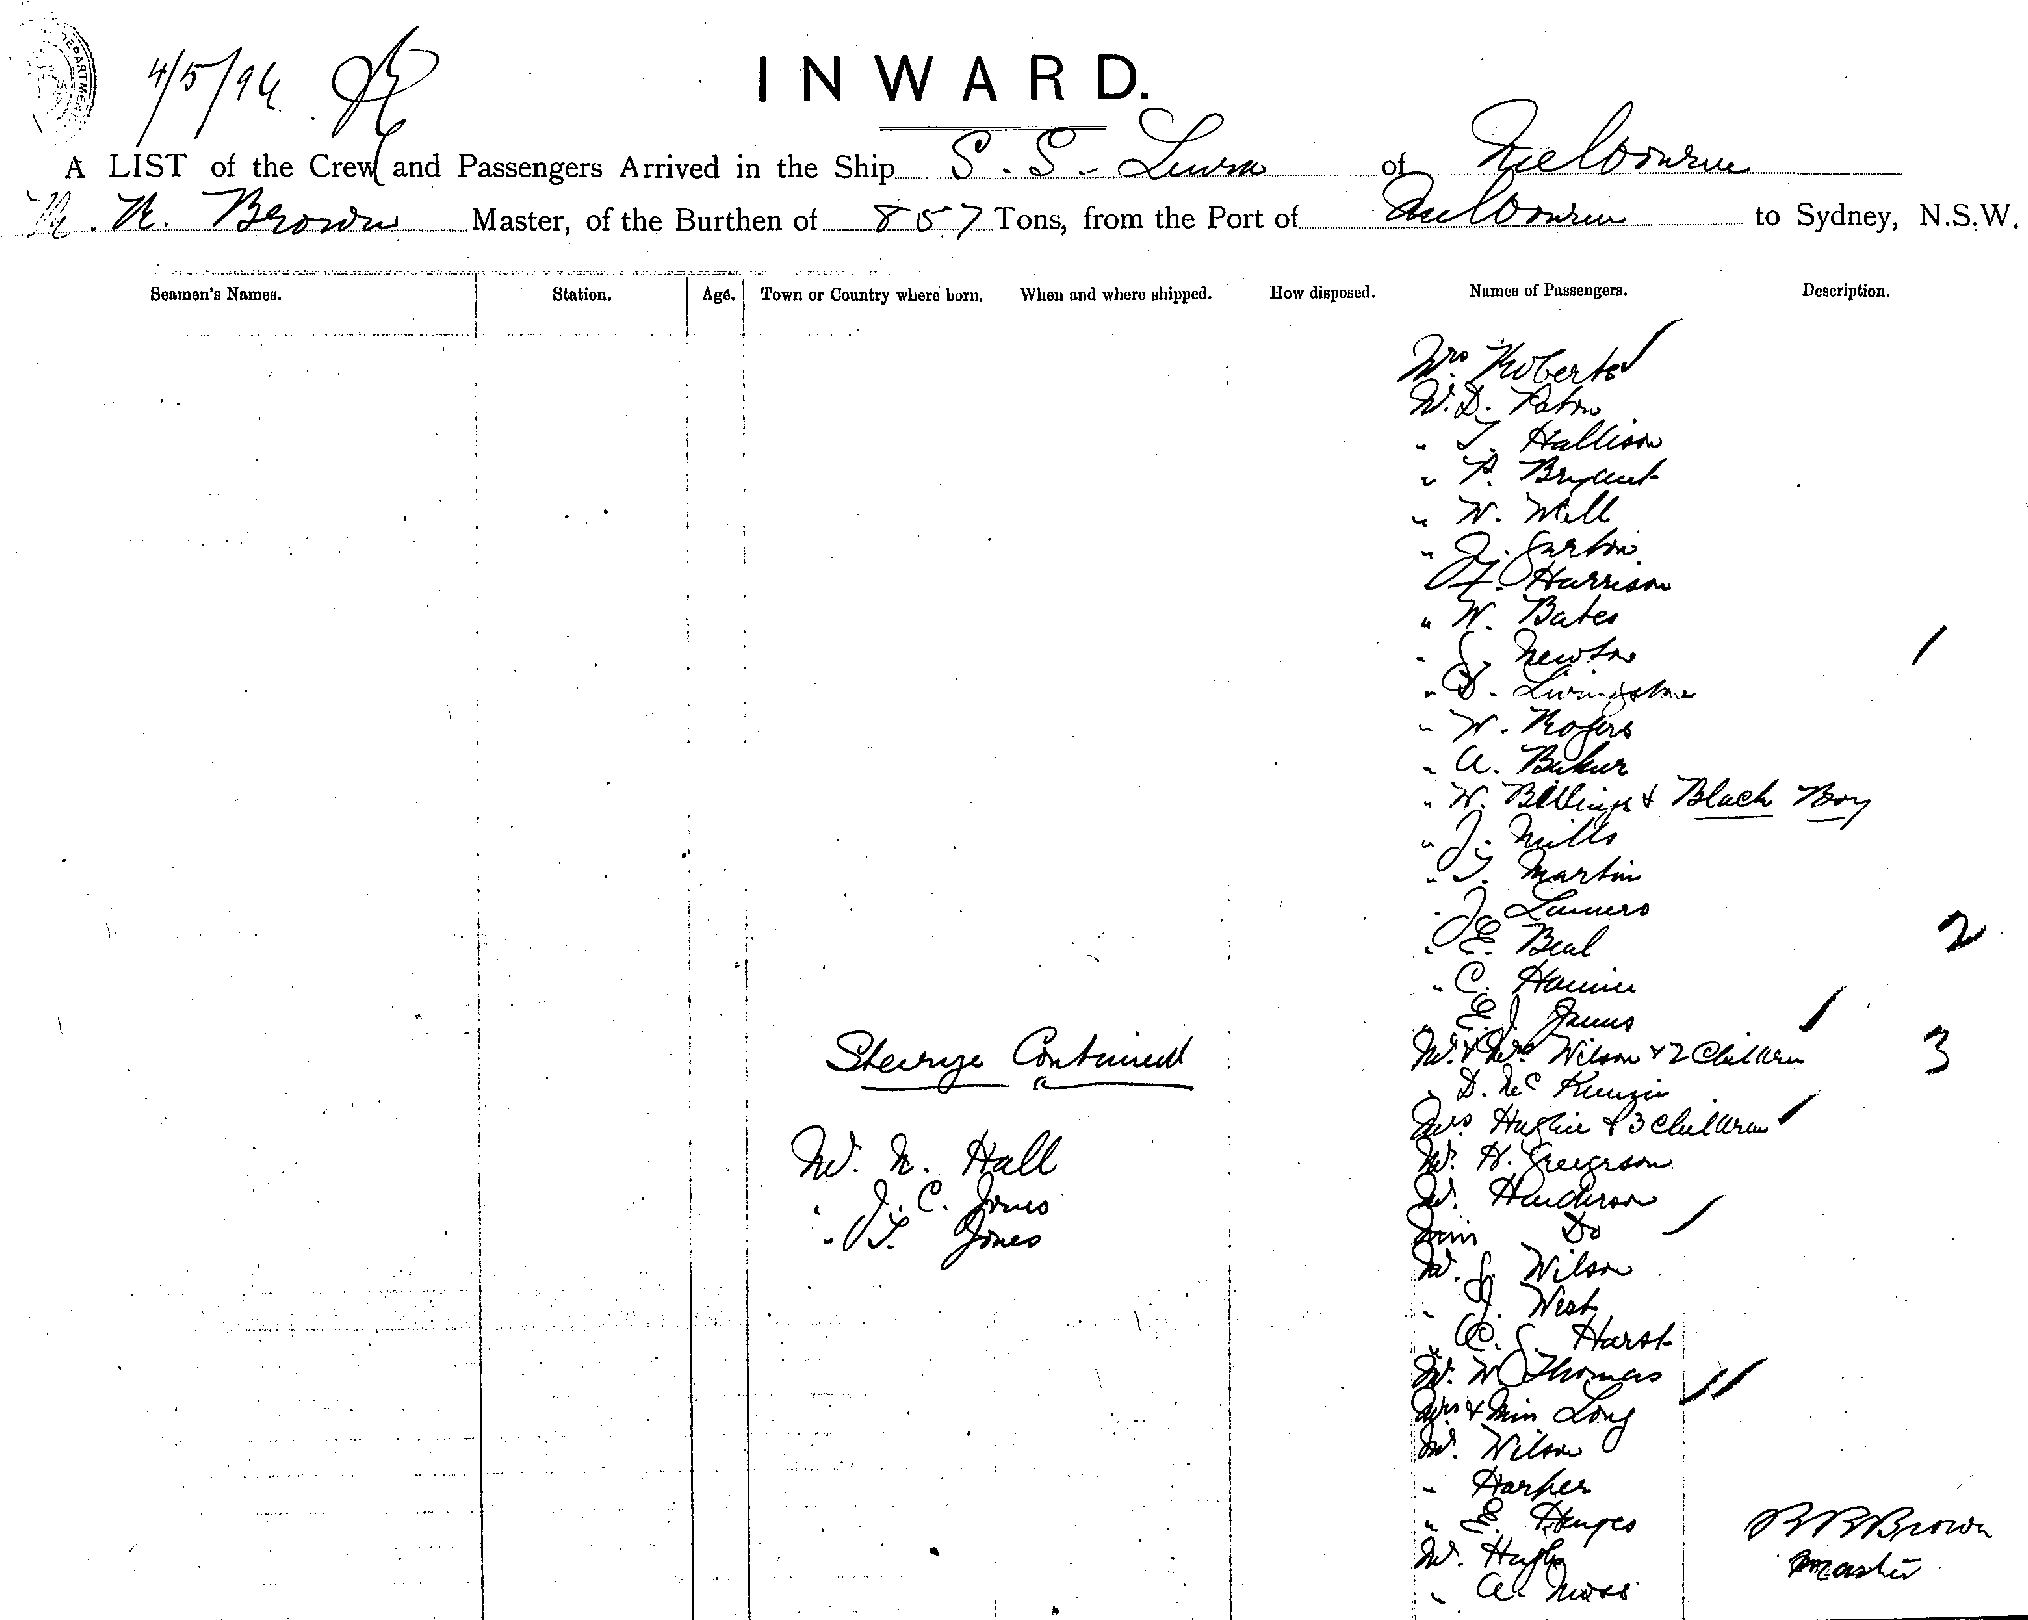 4/5/96
INWARD.
A LIST of the Crew and Passengers Arrived in the Ship S. S. Leura of Melbourne
R. R. Brown Master, of the Burthen of 857 Tons, from the Port of Melbourne to Sydney, N.S.W.
Seamen's Names. Station. Age. Town or Country where born. When and where shipped. How disposed. Names of Passengers. Description.
Mrs Roberts
Mr. D. Paton
" T. Hallison
" P. Bryant
" W. Well
" J. Garton
" T. Harrison
" W. Bates
" J. Newton
" D. Livingstone
" W. Rogers
" A. Baker
" W. Billings & Black Boy
" J. Mills
" T. Martin
" J.
" E. Beal
2
" C.
" E. J. James
Mr. & Mrs Wilson & 2 Children
3
" D. McKenzie
Mrs Hughie & 3 Children
Mr. H. Greerson
Mr. Henderson
Miss Do
Mr. J. Wilson
" J. West
" C. J. Harst
Mr. W. Thomas
Mrs & Miss Long
Mr. Wilson
" Harper
" E. Hayes
Mr. Hughes
" A. Moss
Steerage Continued
Mr. N. Hall
" J. C. Jones
" T. Jones
R R Brown
Master